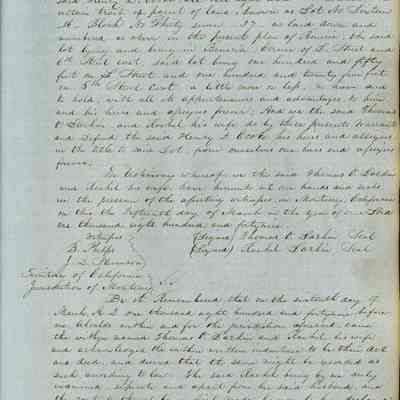 certain tract or parcel of land, known as Lot No
14. Block No Thirty seven 37. as laid down and
numbered as above in the present plan of Benicia, the said
lot lying and being in Benicia Corner of I. Street and
5th Street east, said lot being one hundred and fifty
feet on I Street and one hundred and twenty five feet
on 5th Street East, a little more or less, to have and
to hold, with all the appurtenances and advantages to him
and his heirs and assigns forever. And we the said Thomas
O Larkin and Rachel his wife do by these presents Warrant
and Defend the said Henry D. Cooke his heirs and assigns
in the title to said Lot, from ourselves our heirs and assigns
forever.
In testimony whereof we the said Thomas O. Larkin
and Rachel his wife have hereunto set our hands and seals
in the presence of the subscribing witnesses, in Monterey, California
on this the fifteenth day of March in the year of our Lord
one thousand eight hundred and forty nine.
Witness
(Signed) Thomas O. Larkin Seal
B. Phelps
(Signed) Rachel Larkin Seal
Territory of California
Jurisdiction of Monterey
Be it Remembered that on the sixteenth day of
March A.D. one thousand eight hundred and forty nine before
me within and for the jurisdiction aforesaid, came
the within named Thomas O Larkin and Rachel his wife
and acknowledged the within written indenture to be their act
and deed, and desired that the same might be recorded as
such according to law. The said Rachel being by me duly
examined, separate and apart from her said husband, and